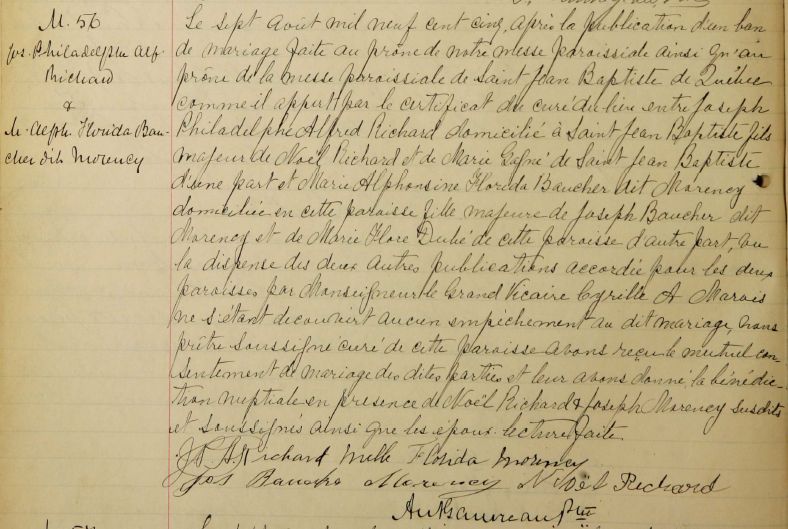 M. 56
Jos. Philadelphe Alf.
Richard
&
M. Alpth. Florida Bau-
cher dit Morency
Le sept Août mil neuf cent cinq, après la publication d'un ban
de mariage faite au prône de notre messe paroissiale ainsi qu'au
prône de la messe paroissiale de Saint Jean Baptiste de Québec
comme il appert par le certificat du curé du lieu entre Joseph
Philadelphe Alfred Richard domicilié à Saint Jean Baptiste fils
majeur de Noël Richard et de Marie Gagné de Saint Jean Baptiste
d'une part et Marie Alphonsine Florida Baucher dit Morency
domiciliée en cette paroisse fille majeure de Joseph Baucher dit
Morency et de Marie Flore Dubé de cette paroisse d'autre part, vu
la dispense des deux autres publications accordée pour les deux
paroisses par Monseigneur le Grand Vicaire Cyrille A Marois
ne s'étant découvert aucun empêchement au dit mariage, nous
prêtre soussigné curé de cette paroisse avons reçu le mutuel con-
sentement de mariage des dites parties et leur avons donné la bénédic-
tion nuptiale en présence de Noël Richard & Joseph Morency susdits
et soussignés ainsi que les époux. Lecture faite.
J. P. A. Richard Melle Florida Morency
Jos Baucher Morency Noël Richard
Ant Gauvreau Ptre